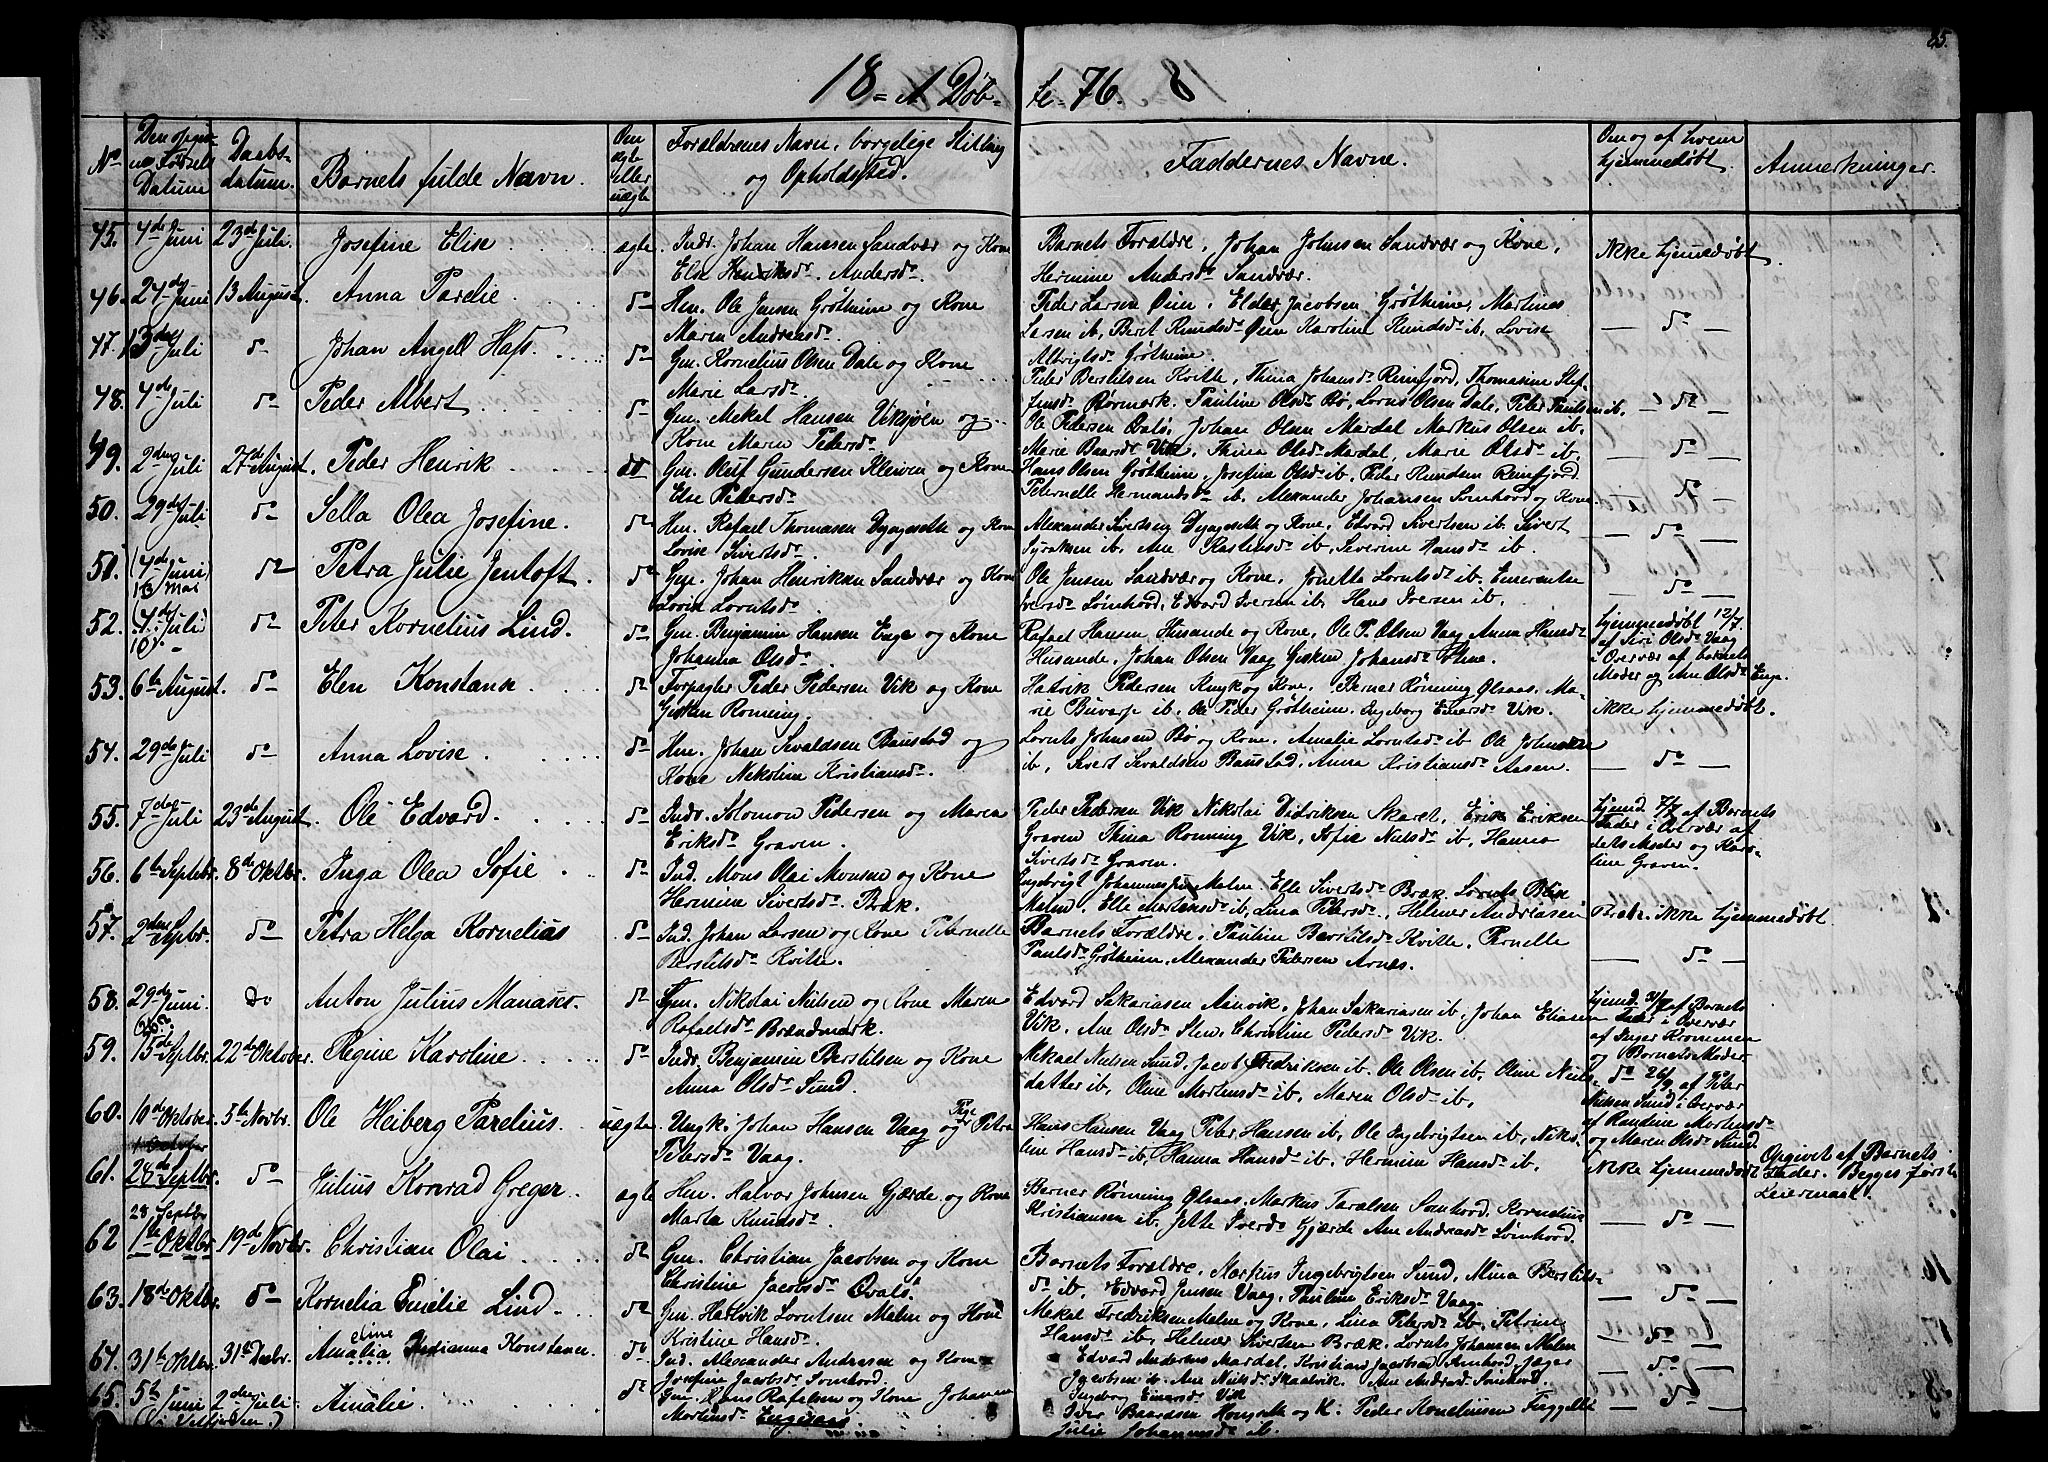 85.
18 = A Døb= te = 76. 8
No
Den opgivne Fødsels Datum
Daabs-datum.
Barnets fulde Navn.
Om ægte eller uægte
Forældrenes Navn, borgelige Stilling og Opholdssted.
Faddernes Navne.
Om og af hvem hjemmedøbt.
Anmerkninger.
45. 4de Juni 23de Juli. Josefine Elise ægte Indr. Johan Hansen Sandvær og Kone
Else Henriksd. Andersd.
Barnets Forældre, Johan Johnsen Sandvær og Kone,
Hermine Andersd. Sandvær.
Ikke hjemmedøbt.
46. 24de Juni 13 August. Anna Parelie do Hm. Ole Jensen Grøtheim og Kone
Maren Andreasd.
Peder Larsen Øien, Elder Jacobsen Grøtheim, Martinus
Larsen ib, Berit Knudsd. Øien Karoline Knudsd. ib, Lovise
Albrigtsd. Grøtheim.
— do —
47. 13de Juli do Johan Angell Hass. do Gm. Kornelius Olsen Dale og Kone
Marie Larsd.
Peder Berstilsen Kvitte, Thina Johansd. Reinfjord, Thomasine Stef-
finsd. Børmark. Pauline Olsd. Bø, Lornts Olsen Dale, Peter Paulsen ib.
— do —
48. 4de Juli do Peder Albert do Gm. Mekal Hansen Viksjøen og
Kone Maren Pedersd.
Ole Pedersen Dale, Johan Olsen Mardal Markus Olsen ib.
Marie Baarsd. Vik, Thina Olsd. Mardal, Marie Olsd. ib.
— do —
49. 2den Juli 27de August. Peder Henrik do Gm. Oluf Gundersen Kleiven og Kone
Else Petersd.
Hans Olsen Grøtheim, Josefine Olsd. ib. Peter Knudsen Reinfjord.
Peternelle Hermandsd. ib, Alexander Johansen Sømhord og Kone.
— do —
50. 29de Juli do Sella Olea Josefine. do Hm. Rafael Thomasen Dypgeseth og Kone
Lovise Sivertsd.
Alexander Sivertsen Dypgeseth og Kone, Edvard Sivertsen ib. Sivert
Syraksen ib, Ane Rastinsd. ib, Severine Hansd. ib.
— do —
51. 4de Juni (13 Mai do Petra Julie Jentoft. do Gm. Johan Henriksen Sandvær og Kone
Lovise Lorntsd.
Ole Jensen Sandvær og Kone, Jonetta Lorntsd. ib, Emerentse
Iversd. Sømhord, Edvard Iversen ib, Hans Iversen ib.
— do —
52. (4de Juli) 10) do Peter Kornelius Lind. do Gm. Benjamin Hansen Enge og Kone
Johanna Olsd.
Rafael Hansen Husande og Kone, Ole P. Olsen Vaag Anna Hansd.
Husande, Johan Olsen Vaag Gisken Johansd. Flone.
Hjemmedøbt 12/7.
af Siri Olsd. Vaag
i Overvær af barnets
Moder og Ane Olsd. Enge.
53. 6te August. do Elen Konstanse do Forpagter Peder Pedersen Vik og Kone
Gisken Rønning.
Hatvik Pedersen Knyk og Kone. Berner Rønning Olsaas. Ma-
rie Buvarp ib. Ole Peder Grøtheim. Ingeborg Einersd. Vik.
Ikke hjemmedøbt.
54. 29de Juli do Anna Lovise. do Hm. Johan Sevaldsen Baustad og
Kone Nekoline Kristiansd.
Lornts Johnsen Bø og Kone, Amalie Lorntsd. ib Ole Johnsen
ib, Sivert Sevaldsen Baustad, Anna Kristiansd. Aasen.
— do —
55. 7de Juli 23de August. Ole Edvard. do Indr. Solomon Pedersen og Maren
Eriksd. Graven.
Peder Petersen Vik Nikolai Didriksen Skaret, Erik Eriksen
Graven Thina Rønning Vik, Sofie Nielsd. ib, Hanna
Sivertsd. Graven.
Hjemd. 7/7 af Barnets
Fader i Overvær af
dets Moder og Karo-
line Graven.
56. 6te Septbr. 8de Oktbr. Inga Olea Sofie do Ind. Mons Olai Monsen og Kone
Hermine Sivertsd. Bræk.
Ingebrigt Johannesen Malm Elle Sivertsd. Bræk Lornts
Malm, Elle Mortensd. ib, Lina Petersd., Helmer Andreasen
Bræk. ikke hjemmedøbt.
57. 2den Septbr. do Petra Helga Kornelias do Ind. Johan Larsen og Kone Peternelle
Berstilsd. Kvitte.
Barnets Forældre, Pauline Berstilsd. Kvitte, Pernelle
Paulsd. Grøtheim, Alexander Pedersen Arnes.
— do —
58. 29de Juni. (26?) do Anton Julius Manases. do Gm. Nikolai Nielsen og Kone Maren
Rafaelsd. Brændmark.
Edvard Sakariasen Aanvik, Johan Sakariasen ib, Johan Eliasen
Vik, Ane Olsd. Sten, Christine Pedersd. Vik.
Hjemd. af Barnets
Fader i Overvær
af Inger Kronemen
og Barnets Moder
59. 15de Septbr. 22de Oktober. Regine Karoline do Indr. Benjamin Berstilsen og Kone
Anna Olsd. Sund.
Mekael Nielsen Sund, Jacob Fredriksen ib. Ole Olsen ib. Oline Niels-
datter ib, Oline Mortensd. ib, Maren Olsd. ib,
do 26/9. af Peter
Nielsen Sund i Overvær
af Randine Mortensd.
og Maren Olsd. Sund.
60. 10de Oktober 5te Novbr. Ole Heiberg Parelius. uægte Ungk. Johan Hansen Vaag og Pige Petra
Petersd. Vaag.
Hans Hansen Vaag Peter Hansen ib, Ole Ingebrigtsen ib, Niko-
line Hansd. ib, Hanna Hansd. ib. Hermine Hansd. ib.
Ikke hjemmedøbt
Opgivet af Barnets
Fader. Begges første
Leiermaal.
61. 28de Septbr. do Julius Konrad Greger ægte Hm. Halvor Johnsen Gjærde og Kone
Marta Knudsd.
Berner Rønning Olsaas, Markus Taralsen Sømhord, Kornelius
Kristiansen ib, Jette Iversd. Gjærde Ane Andreasd. Sømhord.
— do —
28 Septbr
62 1te Oktbr. 19de Novbr. Christian Olai do Gm. Christian Jacobsen og Kone
Christine Jacobsd. Kvals.
Barnets Forældre, Markus Ingebrigtsen Sund, Mina Berstils-
d. ib, Edvard Jensen Vaag, Pauline Eriksd. Vaag.
— do —
63. 18de Oktbr. do Kornelia Emelie Lind do Gm. Hartvik Lorntsen Malm og Kone
Kristine Hansd.
Mekal Fredriksen Malm og Kone, Lina Petersd. ib, Petrine
Hansd. ib, Helmer Sivertsen Bræk, Lornts Johansen Malm
— do —
64. 31te Oktbr. 31te Decbr. Amalia eline Konstanse. do Ind. Alexander Andresen og Kone
Josefine Jacobsd. Sømhord.
Edvard Andersen Mardal, Kristian Jacobsen Sømhord, Jæger
Jacobsen ib. Ane Nielsd. Skaalvik. Ane Andreasd. Sømhord.
Ingeborg Einersd. Vik
— do —
65. 5te Juni 2den Juli (i Velfjorden.) Amalie. do Gm. Hans Rafelsen og Kone Johanna
Mortensd. Engenaas.
Iver Baardsen Hongseth og K: Peder Kornelinsen Fuggelli
Julie Johannesd. ib.
— do —